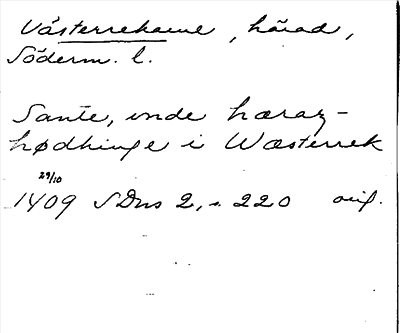 Västerrekarne, härad,
Söderm. l.
Sante, vnde hæraz-
hødhinge i Wæsterrek
29/10
1409 SDns 2, s. 220 orig.